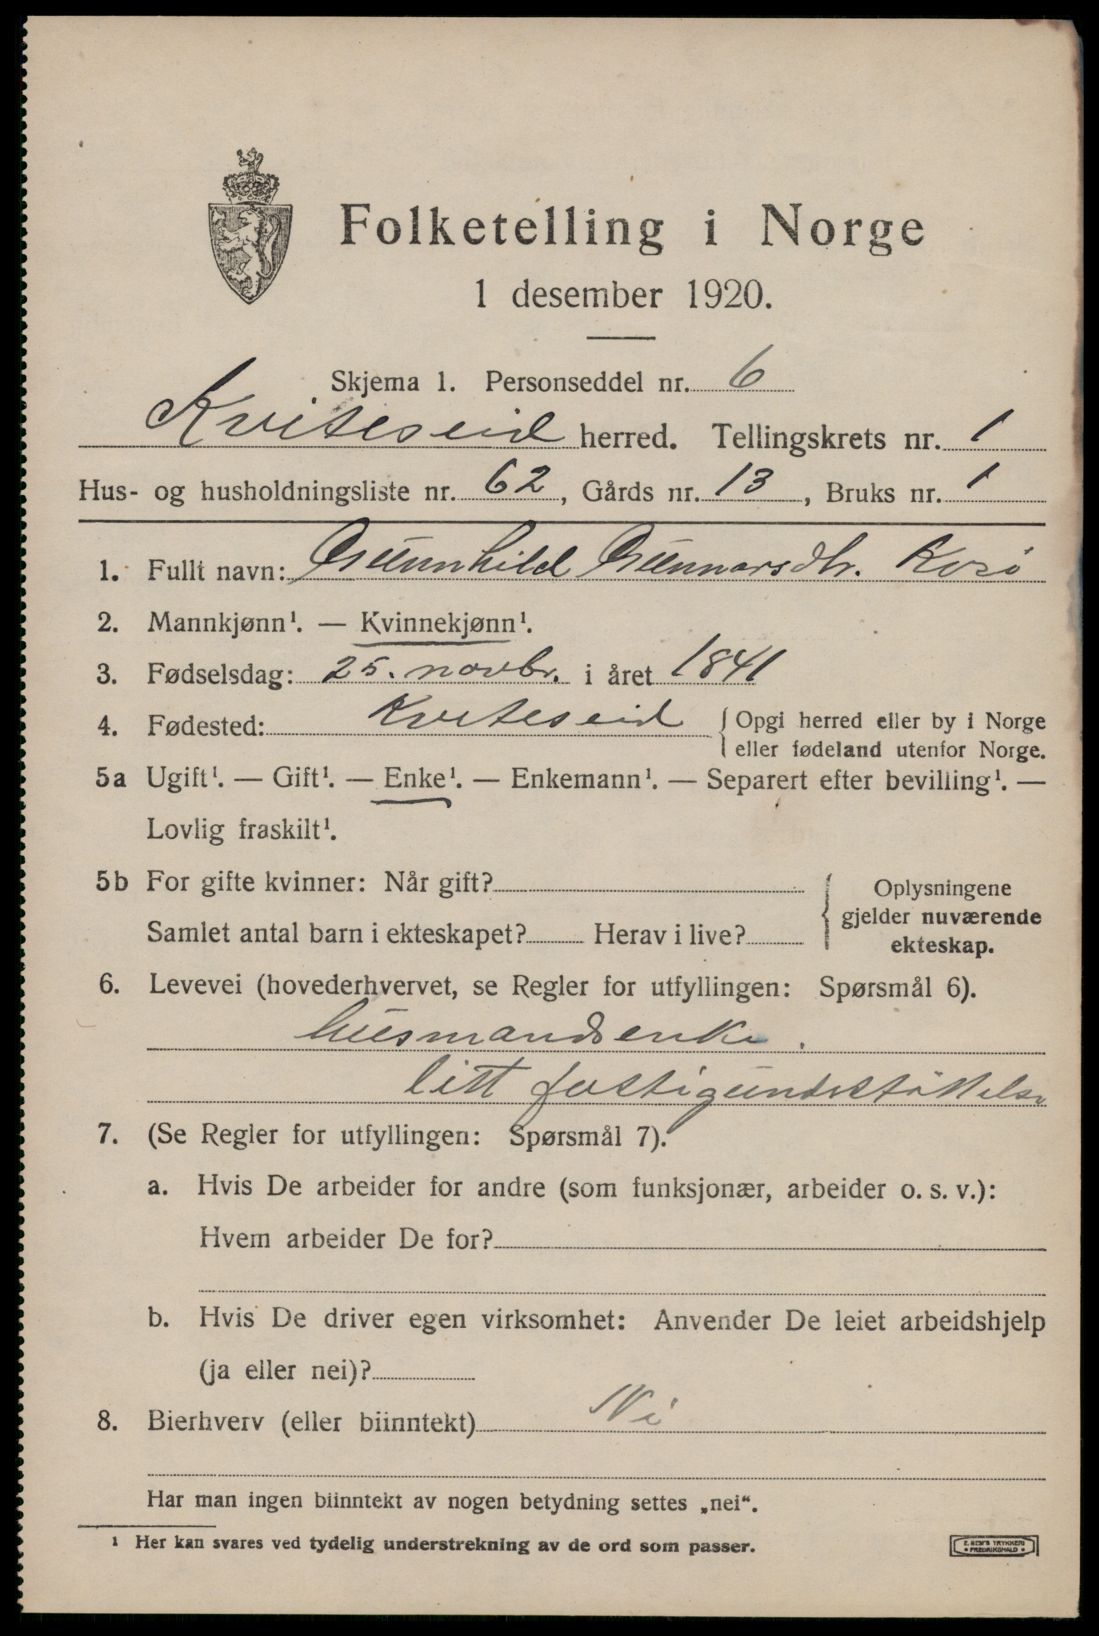 Folketelling i Norge
1 desember 1920.
Skjema 1. Personseddel nr. 6
Kviteseid herred. Tellingskrets nr. 1
Hus- og husholdningsliste nr. 62, Gårds nr. 13, Bruks nr. 1
1. Fullt navn: Gunnhild Gunnarsdtr.
2. Mannkjønn¹. — Kvinnekjønn¹.
3. Fødselsdag: 25. novbr. i året 1841
4. Fødested: Kviteseid {Opgi herred eller by i Norge
eller fødeland utenfor Norge.
5a Ugift¹. — Gift¹. — Enke¹. — Enkemann¹. — Separert efter bevilling¹. —
Lovlig fraskilt¹.
5b For gifte kvinner: Når gift?
Samlet antal barn i ekteskapet? Herav i live?
{Oplysningene
gjelder nuværende
ekteskap.
6. Levevei (hovederhvervet, se Regler for utfyllingen: Spørsmål 6).
husmandsenke.
litt fattigunderstøttelse
7. (Se Regler for utfyllingen: Spørsmål 7).
a. Hvis De arbeider for andre (som funksjonær, arbeider o. s. v.):
Hvem arbeider De for?
b. Hvis De driver egen virksomhet: Anvender De leiet arbeidshjelp
(ja eller nei)?
8. Bierhverv (eller biinntekt) Ni
Har man ingen biinntekt av nogen betydning settes „nei“.
¹ Her kan svares ved tydelig understrekning av de ord som passer.